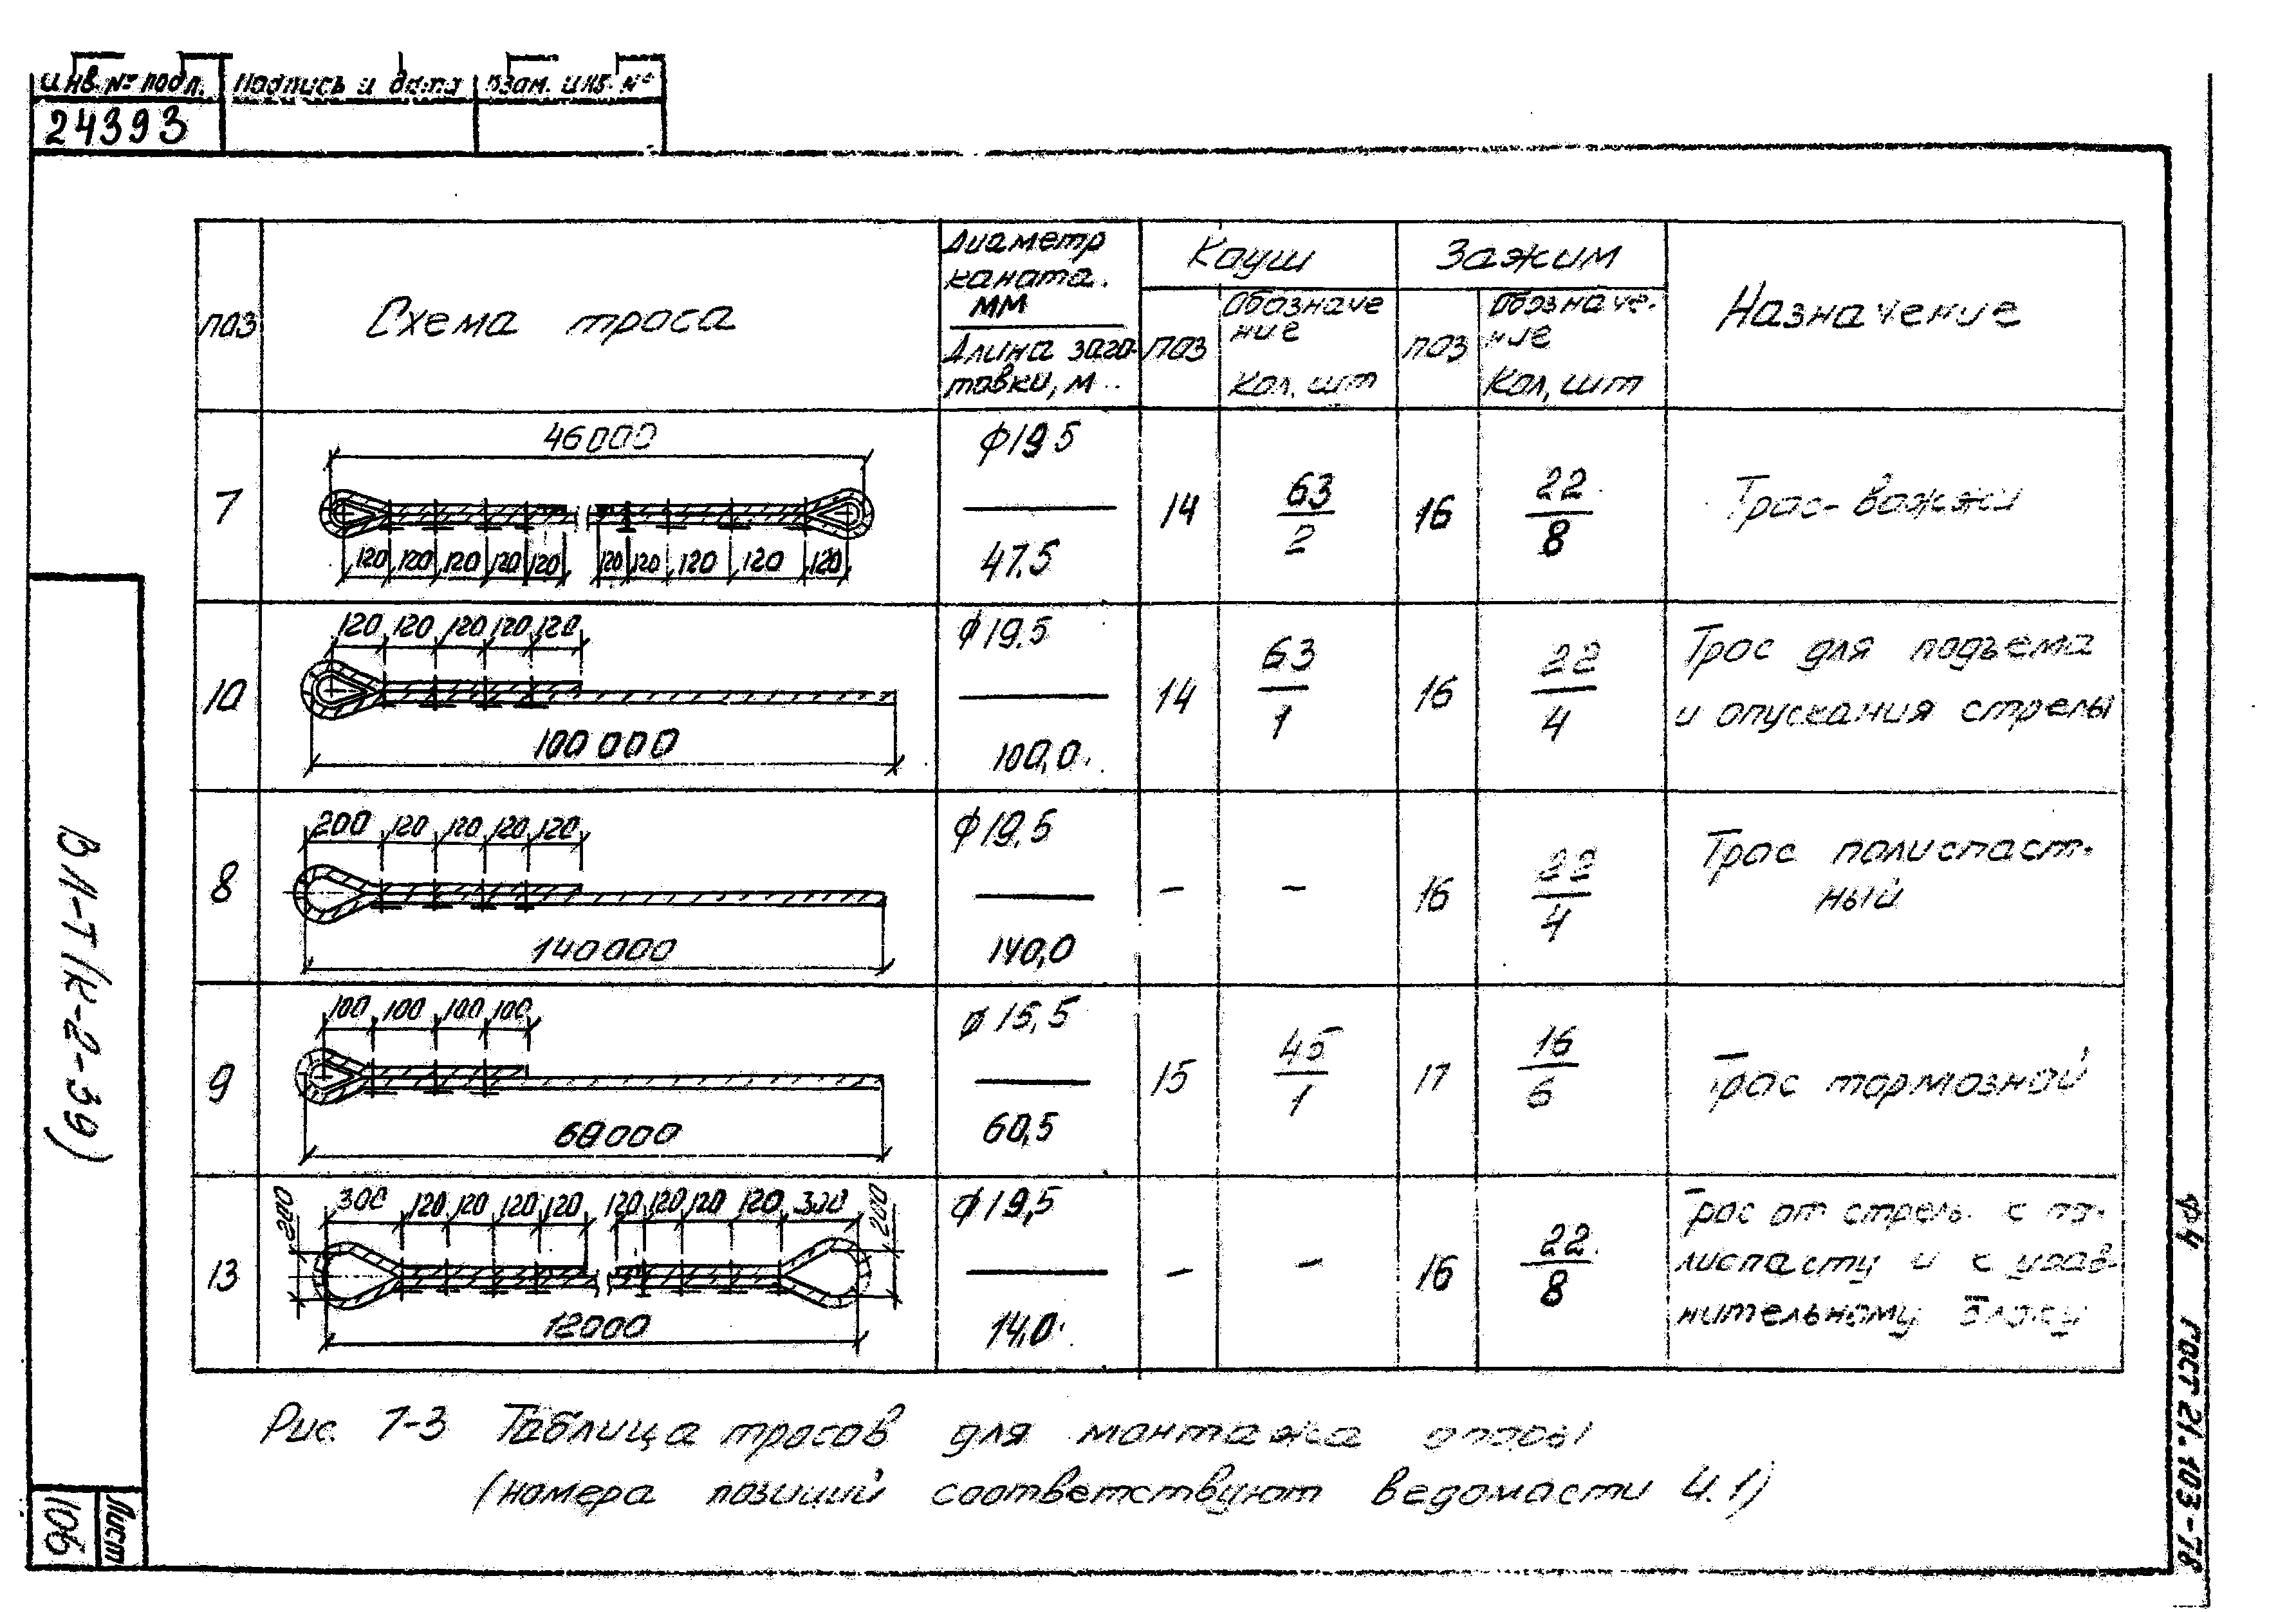 Инв. № подл.
Подпись и дата
Взам. инв. №
24393
поз
Схема троса
Диаметр
каната.
мм
Длина заго-
товки, м
Кауш
поз
Обозначе
ние
Кол. шт
Зажим
поз
Обозначе-
ние
Кол, шт
Назначение
7
46000
120 120 120 120 120 120 120 120 120 120
ф19,5
47.5
14
63
2
16
22
8
Трос-вожжи
10
120 120 120 120 120
100 000
ф19.5
100,0
14
63
1
16
22
4
Трос для подъема
и опускания стрелы
8
200 120 120 120 120
140000
ф19,5
140,0
–
–
16
22
4
Трос полиспаст-
ный
9
100 100 100 100
60000
ф 15,5
60,5
15
45
1
17
16
6
Трос тормозной
13
200 300 120 120 120 120 120 120 120 120 300 200
12000
ф19,5
14,0
–
–
16
22
8
Трос от стрелы к по-
лиспасту и к урав-
нительному блоку
Рис 7-3 Таблица тросов для монтажа опоры
(номера позиций соответствуют ведомости 4.1)
ВЛ-Т(К-2-39)
Лист
106
ф4 ГОСТ 21.103-78